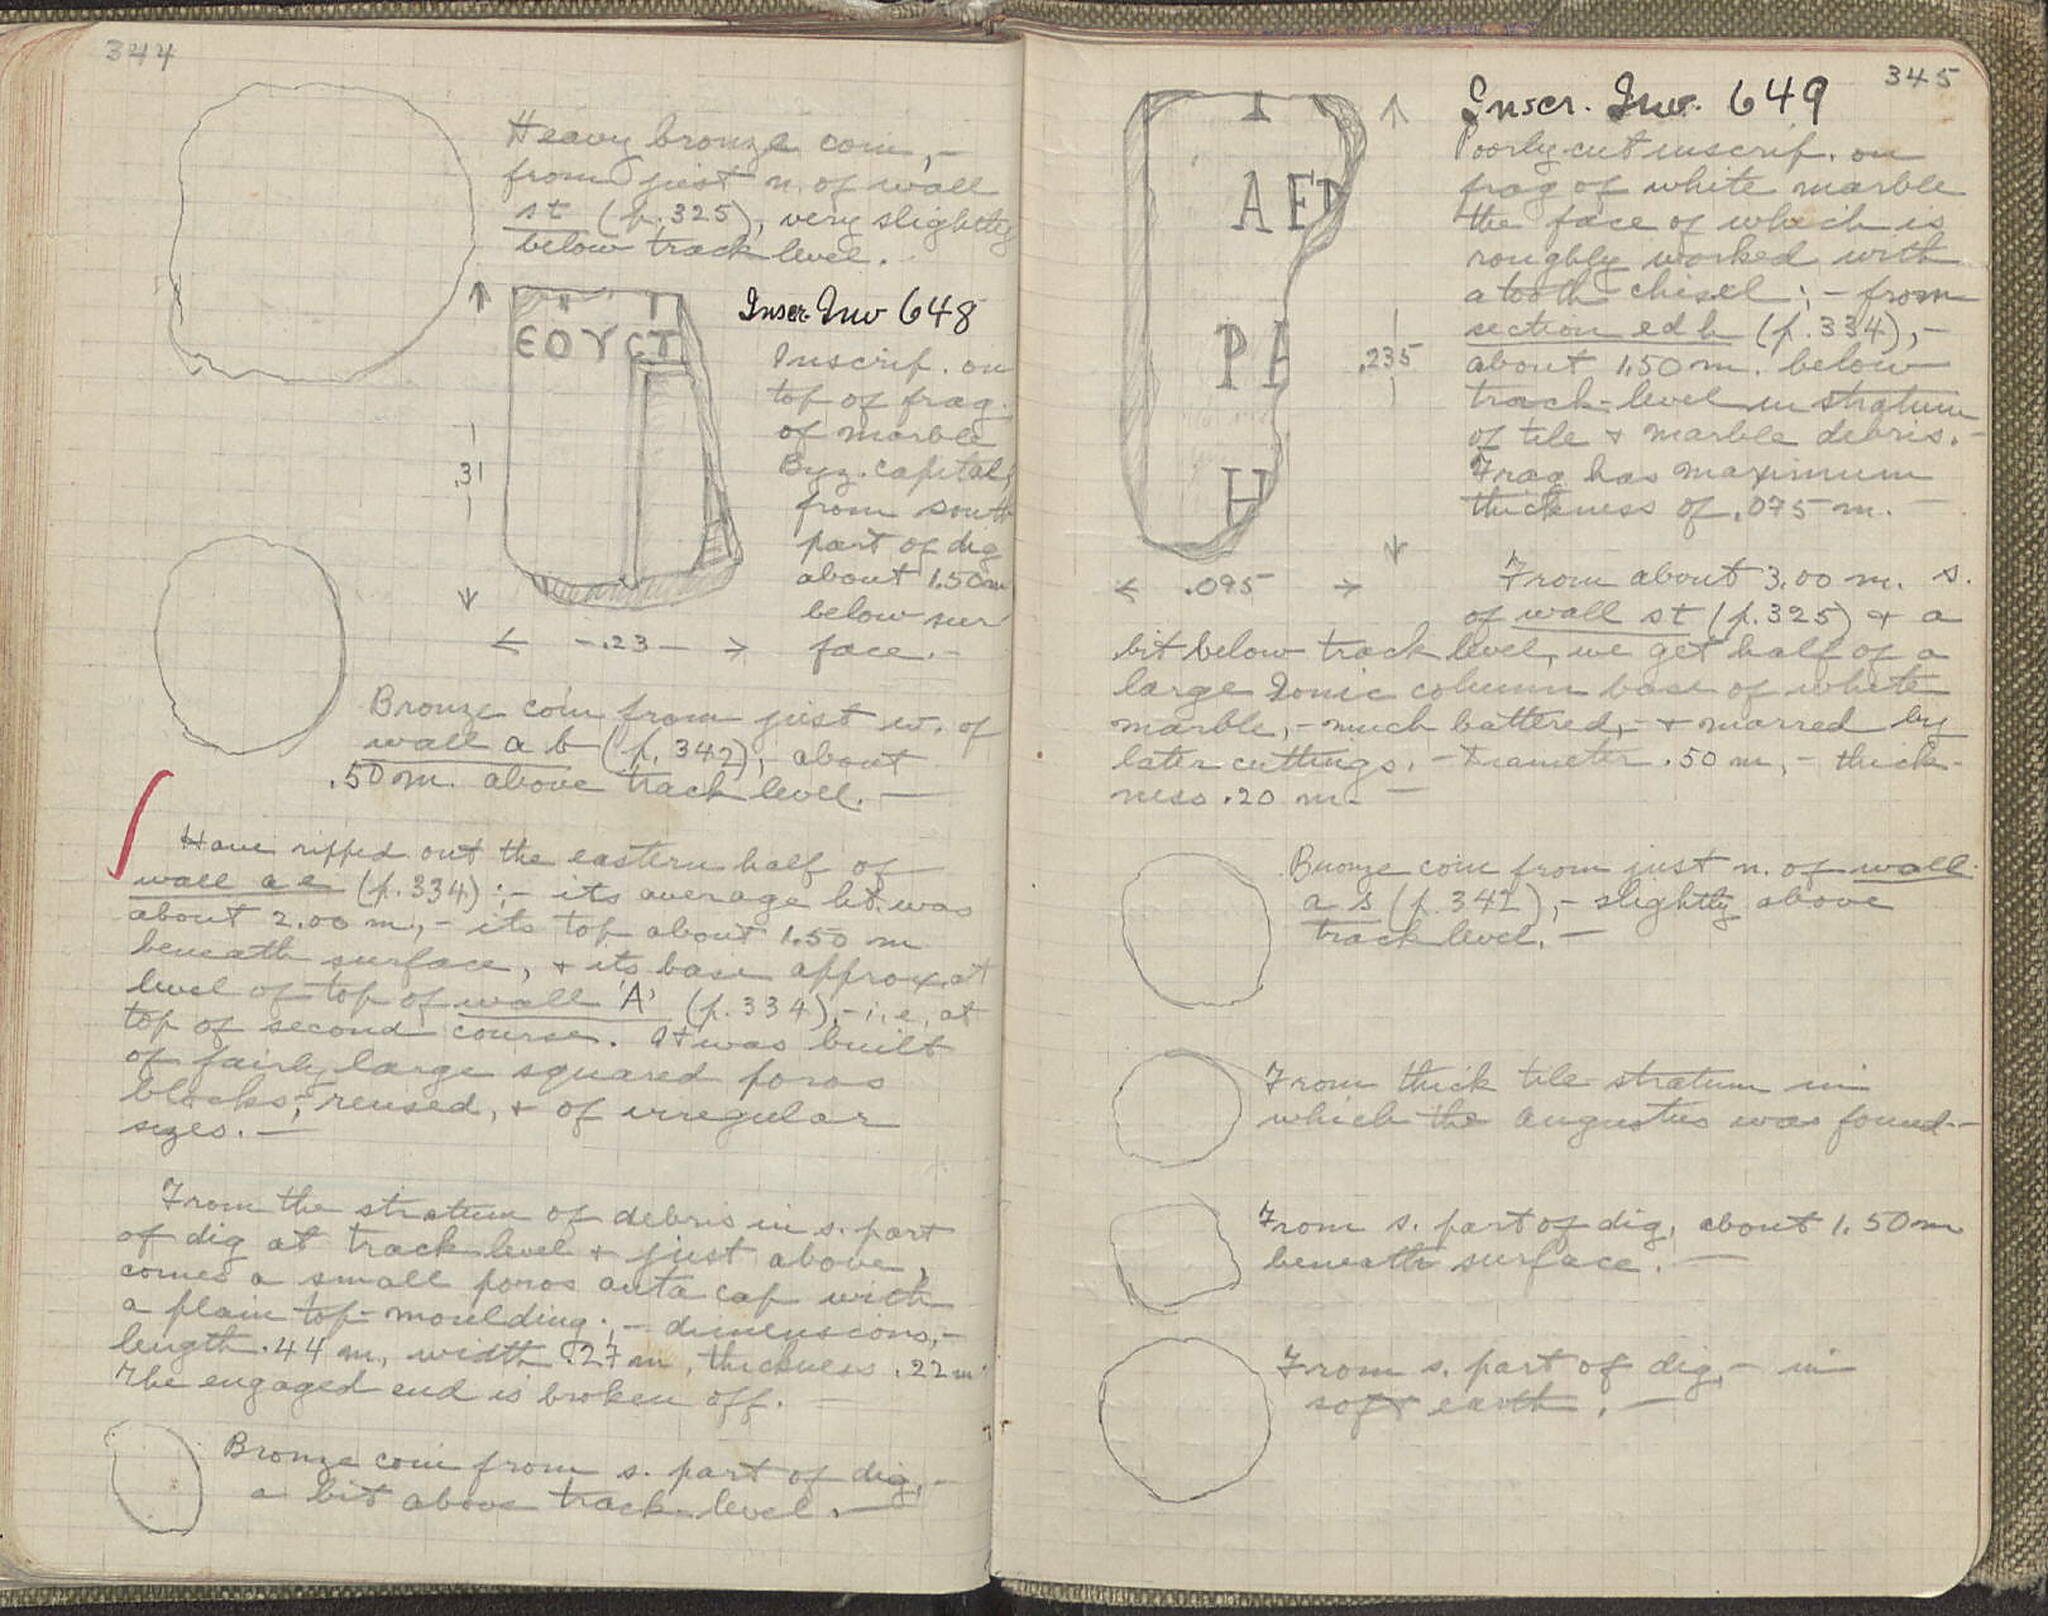 344
Heavy bronze coin, -
from just n. of wall
st (p. 325), very slightly
below track level.
Inscr. Inv 648
ΕΟΥCΤ
Inscrip. on
top of frag.
of marble
Byz. capital,
from south
part of dig
about 1.50 m
below sur
face. -
.31
- .23 -
Bronze coin from just w. of
wall a b (p. 342), about
.50 m. above track level. -
Have ripped out the eastern half of
wall a e (p. 334); - its average ht. was
about 2.00 m., - its top about 1.50 m
beneath surface, + its base approx. at
level of top of wall 'A' (p. 334), - i.e. at
top of second course. It was built
of fairly large squared poros
blocks, reused, + of irregular
sizes. -
From the stratum of debris in s. part
of dig at track level + just above,
comes a small poros anta cap with
a plain top-moulding; - dimensions, -
length .44 m, width .27 m, thickness .22 m.
The engaged end is broken off. -
Bronze coin from s. part of dig, -
a bit above track-level. -
345
Inscr. Inv. 649
Poorly cut inscrip. on
frag of white marble
the face of which is
roughly worked with
a tooth chisel; - from
section edb (p. 334), -
about 1.50 m. below
track-level in stratum
of tile + marble debris. -
Frag has maximum
thickness of .075 m.
Ι
ΑΕΡ
ΡΑ
Η
.235
.095
From about 3.00 m. s.
of wall st (p. 325) + a
bit below track level, we get half of a
large Ionic column base of white
marble, - much battered, - + marred by
later cuttings. - Diameter .50 m, - thick-
ness .20 m. -
Bronze coin from just n. of wall
a s (p. 342), - slightly above
track level. -
From thick tile stratum in
which the Augustus was found. -
From s. part of dig, about 1.50 m
beneath surface. -
From s. part of dig, - in
soft earth. -